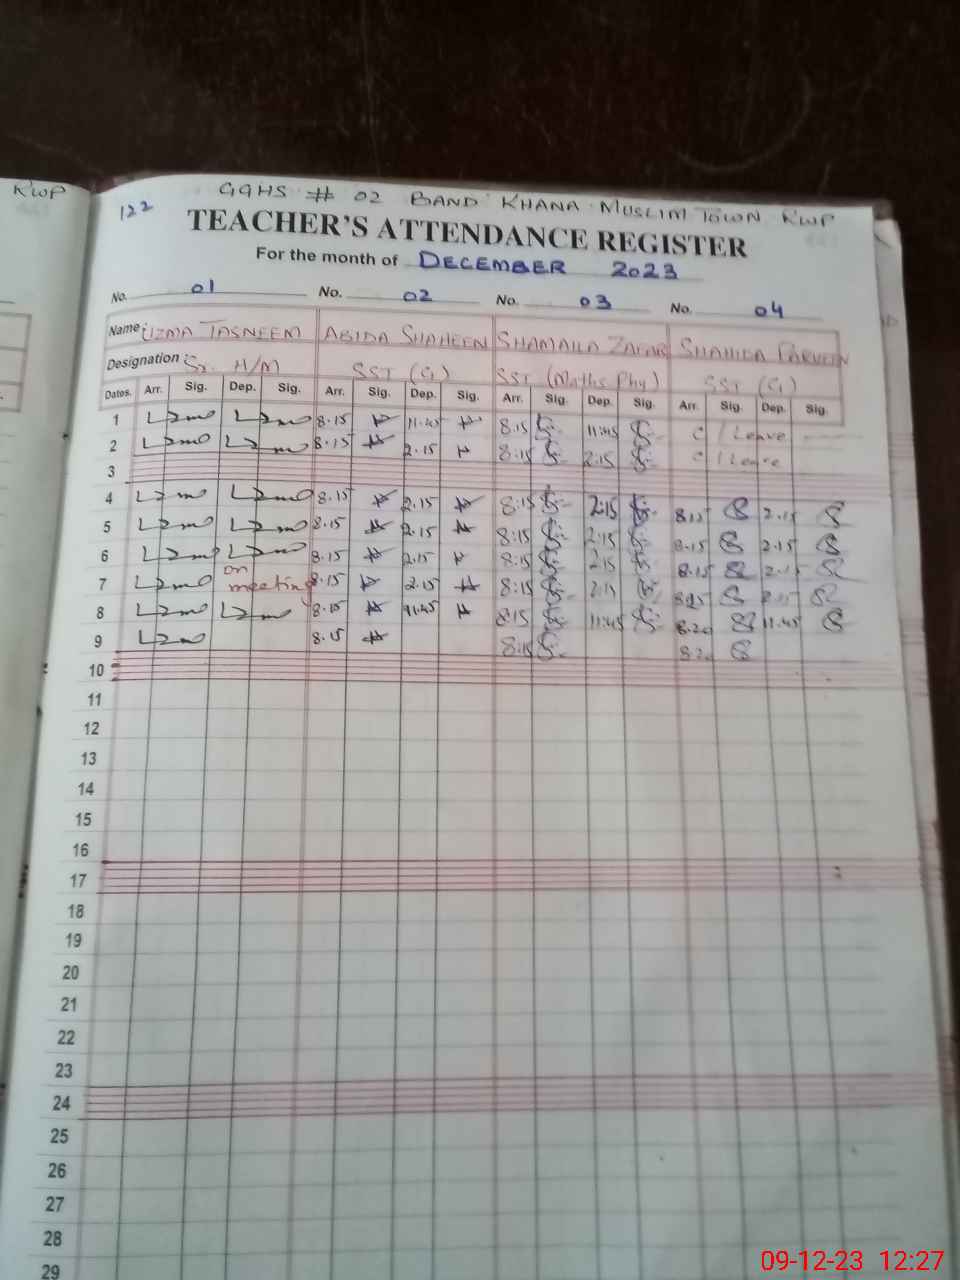 KWP
GGHS # 02 BAND KHANA MUSLIM TOWN RWP
122
TEACHER'S ATTENDANCE REGISTER
For the month of DECEMBER 2023
No. 01 No. 02 No. 03 No. 04
Name UZMA TASNEEM ABIDA SHAHEEN SHAMAILA ZAFAR SHAHIDA PARVEEN
Designation Sr. H/M SST (G) SST (Maths Phy) SST (G)
Dates. Arr. Sig. Dep. Sig. Arr. Sig. Dep. Sig. Arr. Sig. Dep. Sig. Arr. Sig. Dep. Sig.
1 8.15 11.45 8:15 11:45 C/Leave
2 8.15 2.15 8:15 2:15 C/Leave
3
4 8.15 2.15 8:15 2:15 8.15 2.15
5 8.15 2.15 8:15 2:15 8.15 2.15
6 8.15 2.15 8:15 2:15 8.15 2.15
7 on meeting 8.15 2.15 8:15 2:15
8 8.15 11.45 8:15 11:45 8.20 11.45
9 8.15 8:15 8.20
10
11
12
13
14
15
16
17
18
19
20
21
22
23
24
25
26
27
28
29
09-12-23 12:27